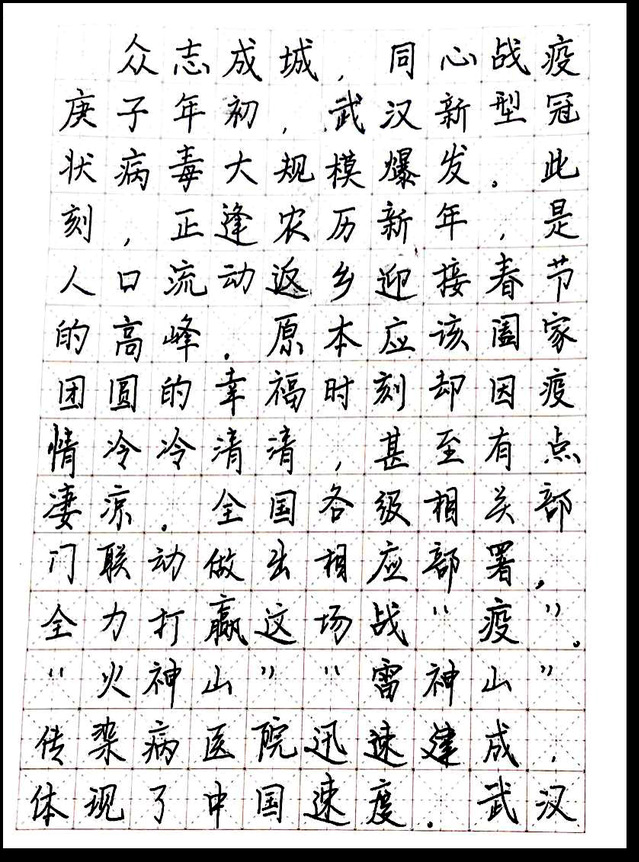 众志成城，同心战疫
庚子年初，武汉新型冠
状病毒大规模爆发。此
刻，正逢农历新年，是
人口流动返乡迎接春节
的高峰。原本应该阖家
团圆的幸福时刻却因疫
情冷冷清清，甚至有点
凄凉。全国各级相关部
门联动做出相应部署，
全力打赢这场战“疫”。
“火神山”“雷神山”
传染病医院迅速建成，
体现了中国速度。武汉